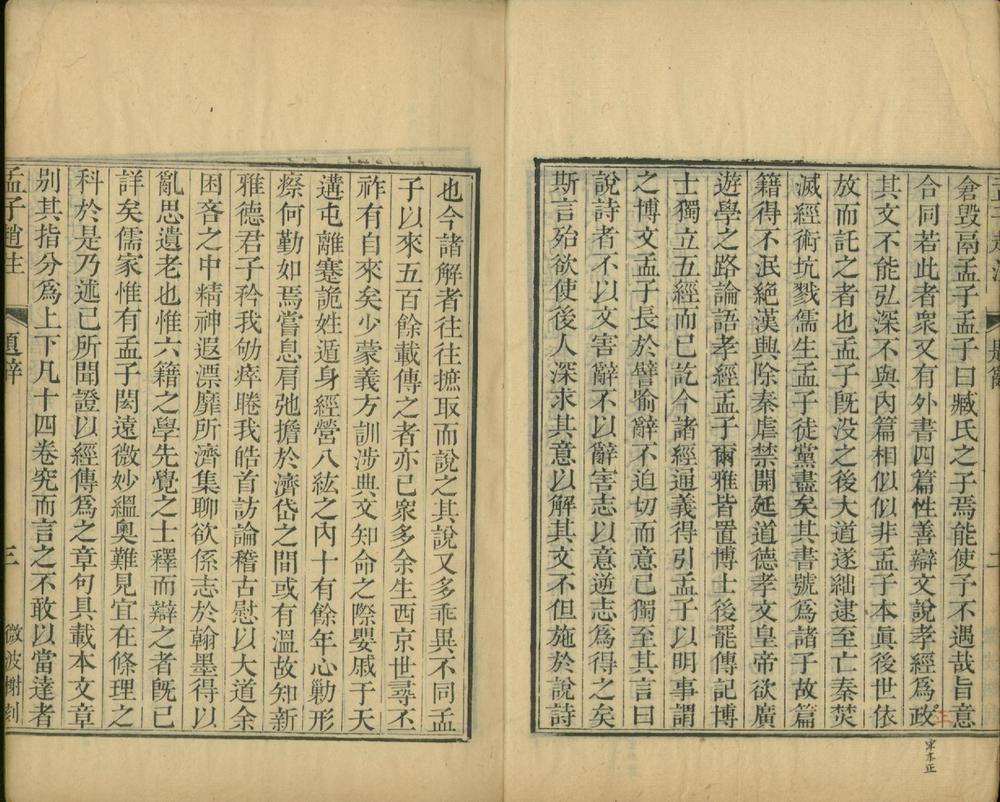 倉毀鬲孟子孟子曰臧氏之子焉能使子不遇哉旨意
合同若此者衆又有外書四篇性善辯文說孝經爲政
其文不能弘深不與內篇相似似非孟子本眞後世依
放而託之者也孟子旣没之後大道遂絀逮至亡秦焚
滅經術坑戮儒生孟子徒黨盡矣其書號爲諸子故篇
籍得不泯絶漢興除秦虐禁開延道德孝文皇帝欲廣
遊學之路論語孝經孟子爾雅皆置博士後罷傳記博
士獨立五經而已訖今諸經通義得引孟子以明事謂
之博文孟子長於譬喻辭不迫切而意已獨至其言曰
說詩者不以文害辭不以辭害志以意逆志爲得之矣
斯言殆欲使後人深求其意以解其文不但施於說詩
宋本正
也今諸解者往往摭取而說之其說又多乖異不同孟
子以來五百餘載傳之者亦已衆多余生西京世尋丕
祚有自來矣少蒙義方訓涉典文知命之際嬰戚于天
遘屯離蹇詭姓遁身經營八紘之內十有餘年心勦形
瘵何勤如焉嘗息肩弛擔於濟岱之間或有溫故知新
雅德君子矜我劬瘁睠我皓首訪論稽古慰以大道余
困吝之中精神遐漂靡所濟集聊欲係志於翰墨得以
亂思遺老也惟六籍之學先覺之士釋而辯之者旣已
詳矣儒家惟有孟子閎遠微妙縕奧難見宜在條理之
科於是乃述已所聞證以經傳爲之章句具載本文章
别其指分爲上下凡十四卷究而言之不敢以當達者
孟子趙注 題辭 三 微波榭刻